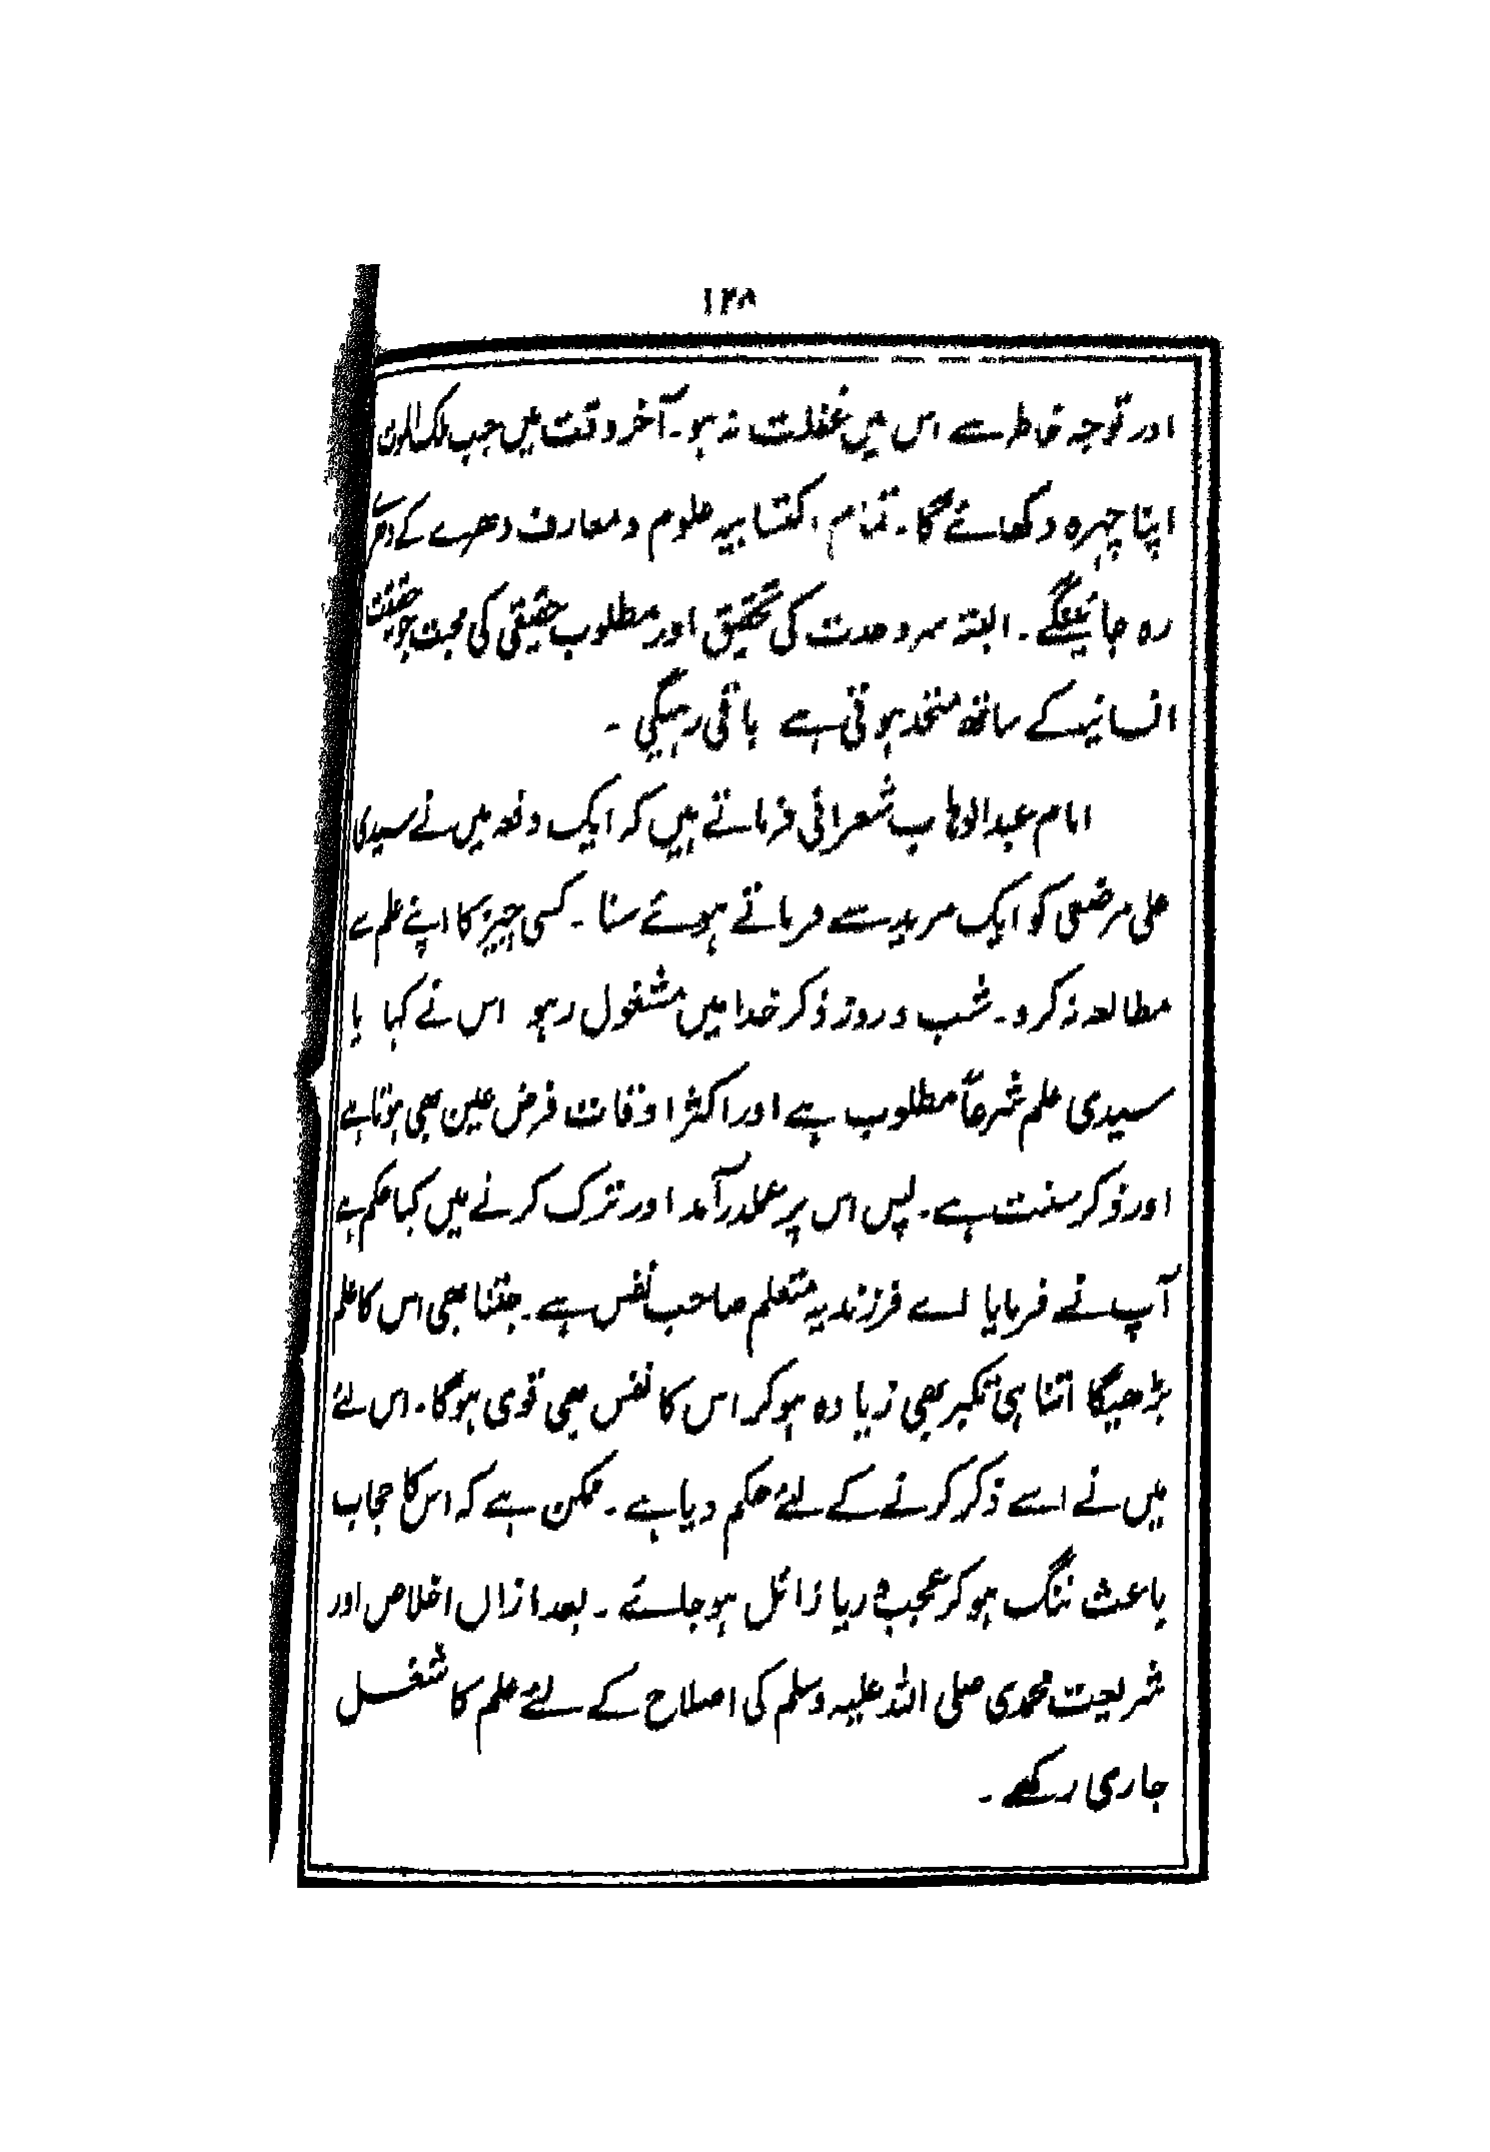 ۱۲۸
اور توجہ خاطر سے اس میں غفلت نہ ہو۔ آخر وقت میں جب ملک الموت
اپنا چہرہ دکھائے گا۔ تمام اکتسابیہ علوم و معارف دھرے کے دھرے
رہ جائینگے۔ البتہ سر وحدت کی تحقیق اور مطلوب حقیقی کی محبت جو حقیقت
انسانیہ کے ساتھ متحد ہوتی ہے باقی رہیگی۔
امام عبدالوہاب شعرانی فرماتے ہیں کہ ایک دفعہ میں نے سیدی
علی مرضفی کو ایک مرید سے فرماتے ہوئے سنا۔ کسی چیز کا اپنے علم سے
مطالعہ نہ کرو۔ شب و روز ذکر خدا میں مشغول رہو اس نے کہا یا
سیدی علم شرعاً مطلوب ہے اور اکثر اوقات فرض عین بھی ہوتا ہے
اور ذکر سنت ہے۔ پس اس پر عملدرآمد اور ترک کرنے میں کیا حکم ہے
آپ نے فرمایا اے فرزند یہ متعلم صاحب نفس ہے۔ جتنا بھی اس کا علم
بڑھیگا اتنا ہی تکبر بھی زیادہ ہو کر اس کا نفس بھی قوی ہوگا۔ اس لئے
میں نے اسے ذکر کرنے کے لئے حکم دیا ہے۔ ممکن ہے کہ اس کا حجاب
باعث ننگ ہو کر عجب و ریا زائل ہو جائے۔ بعد ازاں اخلاص اور
شریعت محمدی صلی اللہ علیہ وسلم کی اصلاح کے لئے علم کا شغل
جاری رکھے۔